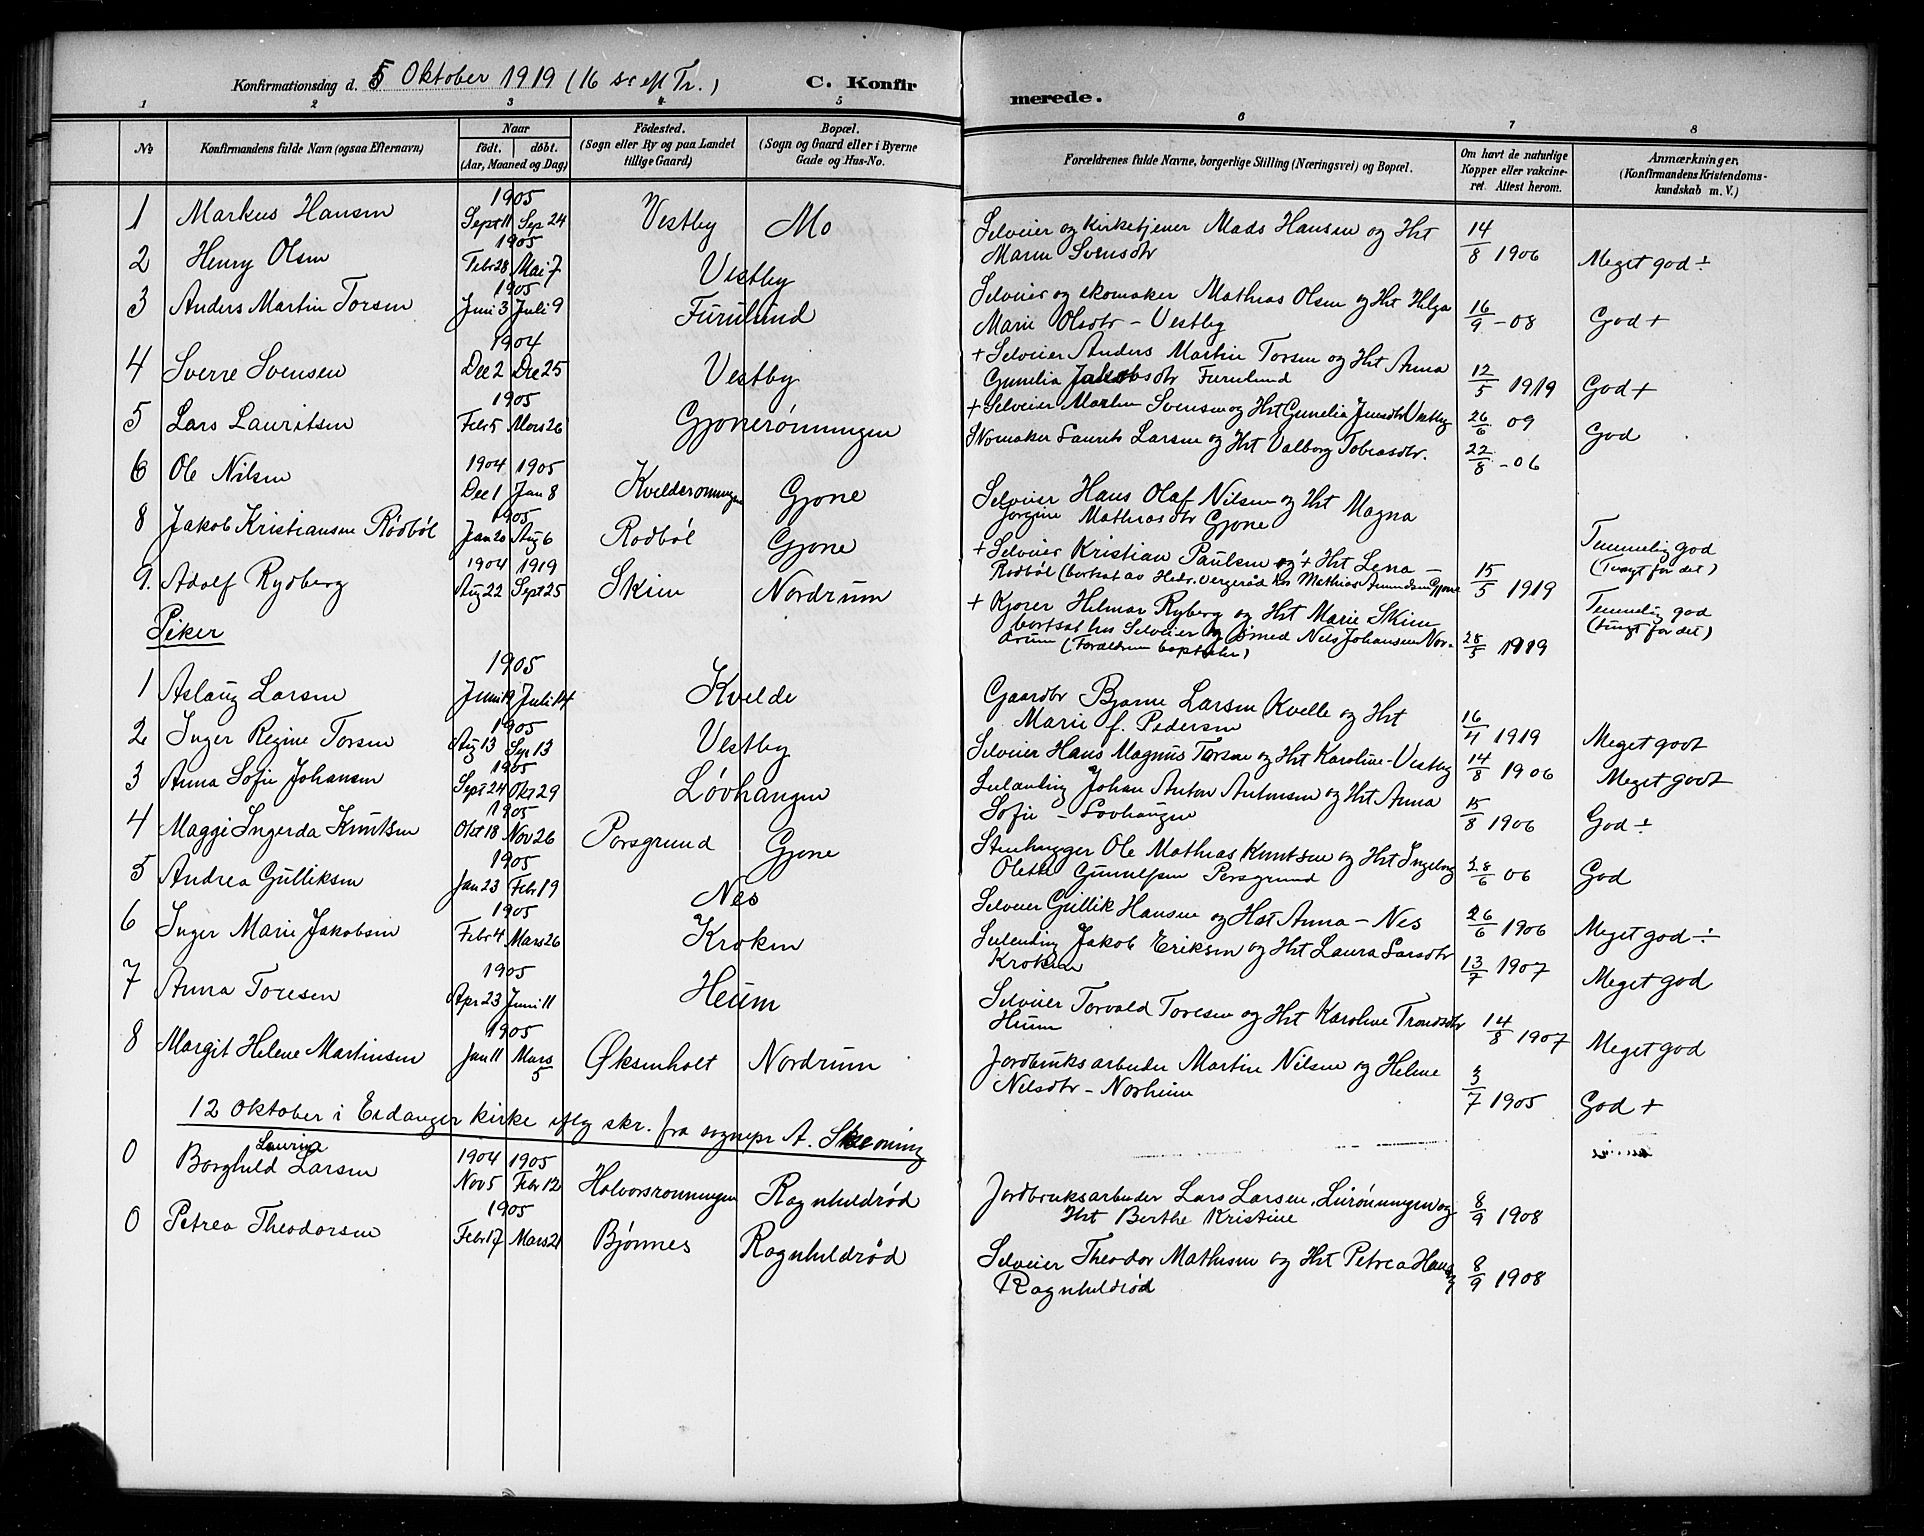 Konfirmationsdag d. 5 Oktober 1919 (16 s. eft Tr.) C. Konfirmerede.
1 2 3 4 5 6 7 8
No Konfirmandens fulde Navn (ogsaa Efternavn) Naar födt. döbt. (Aar, Maaned og Dag) Födested. (Sogn eller By og paa Landet tillige Gaard) Bopæl. (Sogn og Gaard eller i Byerne Gade og Hus-No. Forældrenes fulde Navne, borgerlige Stilling (Næringsvei) og Bopæl. Om havt de naturlige Kopper eller vakcineret. Attest herom. Anmærkninger. (Konfirmandens Kristendomskundskab m. V.)
1905
1 Markus Hansen Sept 11 Sep 24 Vestby Mo Selveier og Kirketjener Mads Hansen og Hst 14/8 1906 Meget god ÷
Maren Svensdtr
1905
2 Henry Olsen Febr 28 Mai 7 Vestby Selveier og skomaker Mathias Olsen og Hst Helga 16/9 - 08 God +
Marie Olsdtr - Vestby
1905
3 Anders Martin Torsen Juni 3 Juli 9 Furulund + Selveier Anders Martin Torsen og Hst Anna 12/5 1919 God +
Gunelia Jakobsdtr Furulund
1904
4 Sverre Svensen Dec 2 Dec 25 Vestby + Selveier Martin Svensen og Hst Gunelia Jensdtr Vestby 26/6 09 God
1905
5 Lars Lauritsen Febr 5 Mars 26 Gjonerönningen Skomaker Laurits Larsen og Hst Valborg Tobiasdtr. 22/8 - 06
1904 1905
6 Ole Nilsen Dec 1 Jan 8 Kvelderonningen Gjone Selveier Hans Olaf Nilsen og Hst Magna
Jorgine Mathiasdtr Gjone
1905
8 Jakob Kristiansen Rödböl Jan 20 Aug 6 Rodböl Gjone + Selveier Kristian Paulsen og + Hst Lena - 15/5 1919 Temmelig god
Rodböl (bortsat av Hedr. Vergeråd hos Mathias Amundsen Gjone (Tungt for det)
1904 1919
9. Adolf Rydberg Aug 22 Sept 25 Skien Nordrum + Kjorer Hilmar Ryberg og Hst Marie Skien 28/5 1919 Temmelig god
bortsat hos Selveier og smed Nils Johansen Nordrum (Forældrene baptister) (tungt for det)
Piker
1905
1 Aslaug Larsen Juni 19 Juli 14 Kvelde Gaardbr Bjarne Larsen Kvelle og Hst 16/4 1919 Meget godt
Marie f. Pedersen
1905
2 Inger Regine Torsen Aug 13 Sep 13 Vestby Selveier Hans Magnus Torsen og Hst Karoline - Vestby 14/8 1906 Meget godt
1905
3 Anna Sofie Johansen Sept 24 Okt 29 Lövhangen Leilænding Johan Anton Antonsen og Hst Anna 15/8 1906 God ÷
Sofie - Lovhangen
1905
4 Maggi Ingerda Knutsen Okt 18 Nov 26 Porsgrund Gjone Stenhugger Ole Mathias Knutsen og Hst Ingeborg 28/6 06 God
Olette Gunnulfsen Porsgrund
1905
5 Andrea Gulliksen Jan 23 Febr 19 Nes Selveier Gullik Hansen og Hst Anna - Nes 26/6 1906 Meget god ÷
1905
6 Inger Marie Jakobsen Febr 4 Mars 26 Kroken Leilending Jakob Eriksen og Hst Laura Larsdtr 13/7 1907 Meget god
Kroken
1905
7 Anna Toresen Apr 23 Juni 11 Heum Selveier Torvald Toresen og Hst Karoline Trondsdtr 14/8 1907 Meget god
Heum
1905
8 Margit Helene Martinsen Jan 11 Mars 5 Øksenholt Nordrum Jordbruksarbeider Martin Nilsen og Helene 3/7 1905 God +
Nilsdtr - Norheim
12 Oktober i Eidanger kirke iflg skr. fra sognepr A.
1904 1905
0 Borghild Laurina Larsen Nov 5 Febr 12 Halvorsronningen Ragnhildröd Jordbruksarbeider Lars Larsen, Liröningen og 8/9 1908
Hst Berthe Kristine
1905
0 Petrea Theodorsen Febr 17 Mars 21 Bjönnes Ragnhildröd Selveier Theodor Mathisen og Hst Petrea 8/9 1908
Ragnhildröd